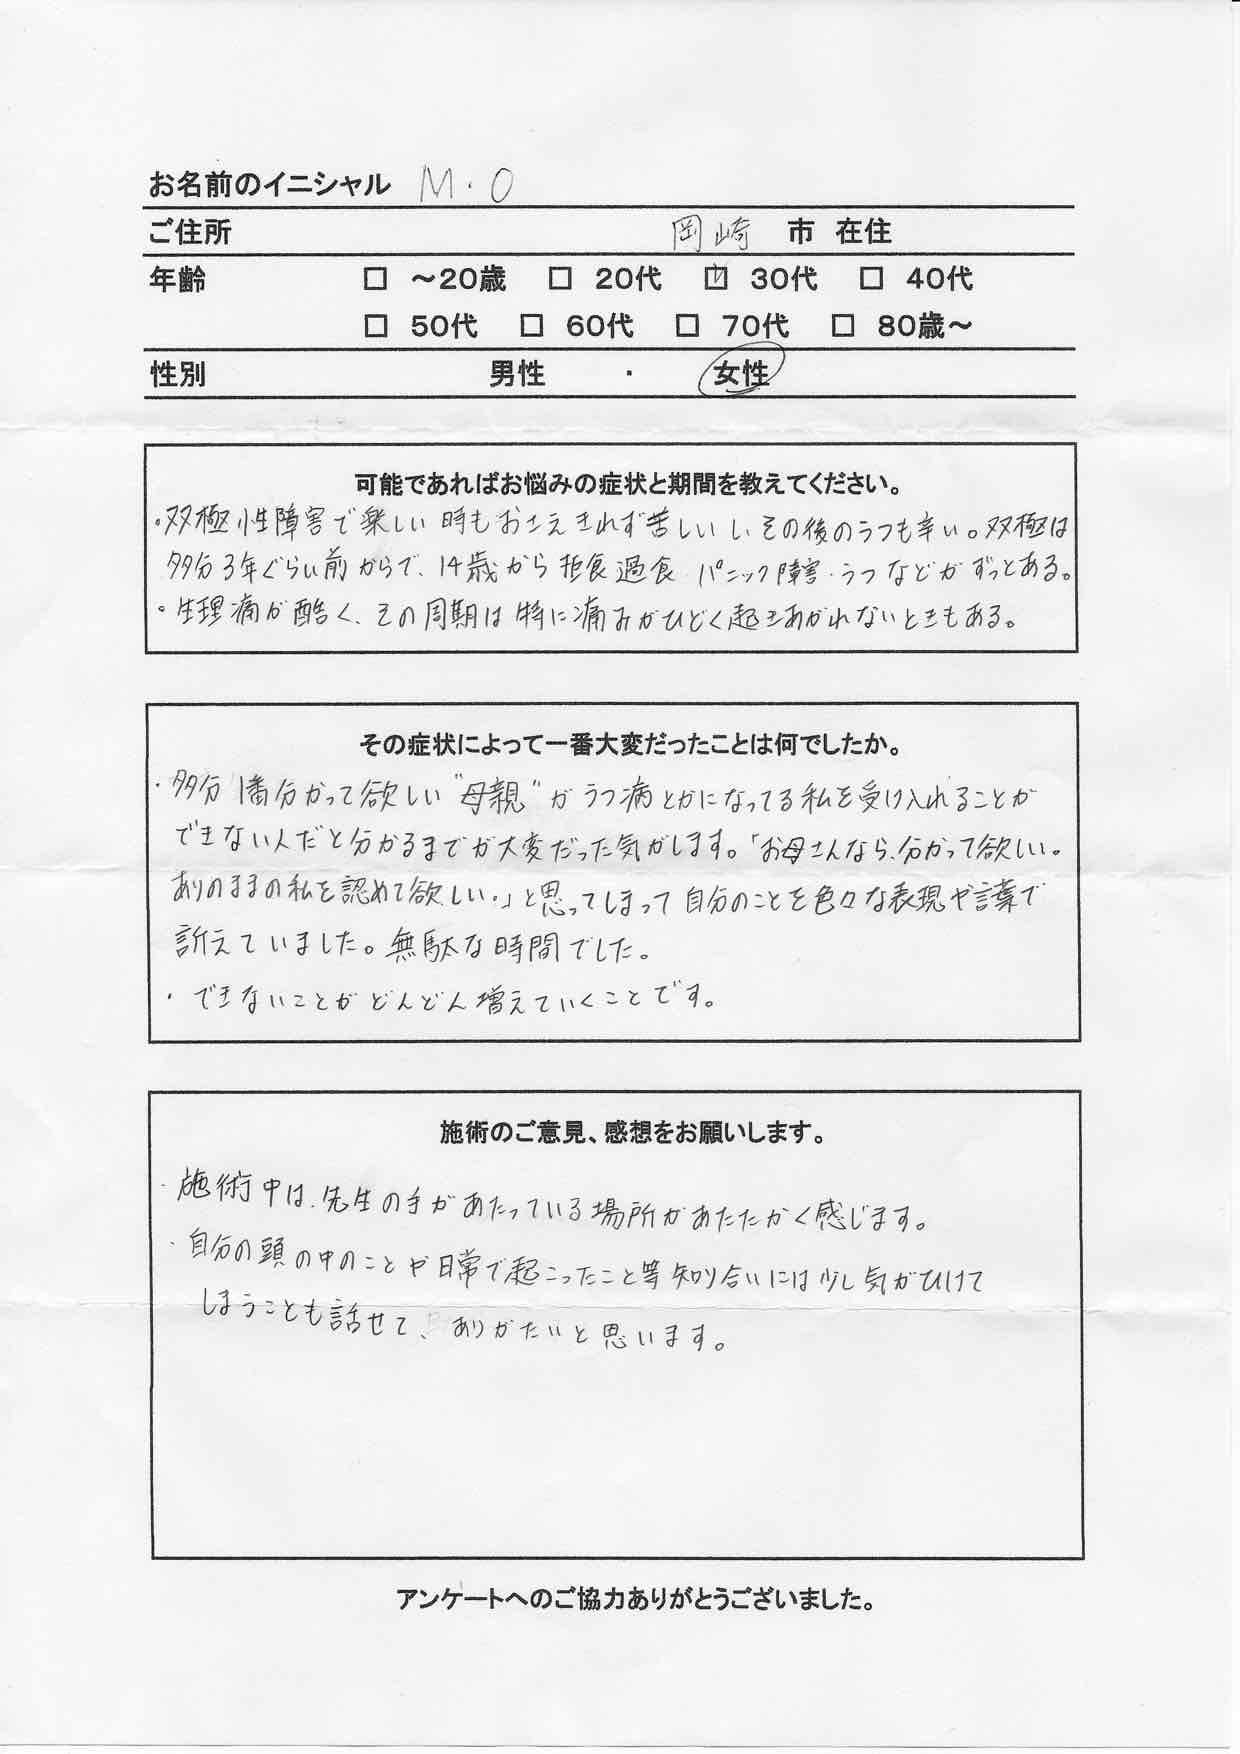 お名前のイニシャル M.O
ご住所 岡崎 市 在住
年齢 □ ～20歳 □ 20代 ☑ 30代 □ 40代
□ 50代 □ 60代 □ 70代 □ 80歳～
性別 男性 ・ 女性
可能であればお悩みの症状と期間を教えてください。
・双極性障害で楽しい時もおさえきれず苦しいし、その後のうつも辛い。双極は
多分3年ぐらい前からで、14歳から拒食過食・パニック障害・うつなどがずっとある。
・生理痛が酷く、その周期は特に痛みがひどく起きあがれないときもある。
その症状によって一番大変だったことは何でしたか。
・多分1番分かって欲しい"母親"がうつ病とかになってる私を受け入れることが
できない人だと分かるまでが大変だった気がします。「お母さんなら、分かって欲しい。
ありのままの私を認めて欲しい。」と思ってしまって自分のことを色々な表現や言葉で
訴えていました。無駄な時間でした。
・できないことがどんどん増えていくことです。
施術のご意見、感想をお願いします。
・施術中は、先生の手があたっている場所があたたかく感じます。
・自分の頭の中のことや日常で起こったこと等知り合いには少し気がひけて
しまうことも話せて、ありがたいと思います。
アンケートへのご協力ありがとうございました。